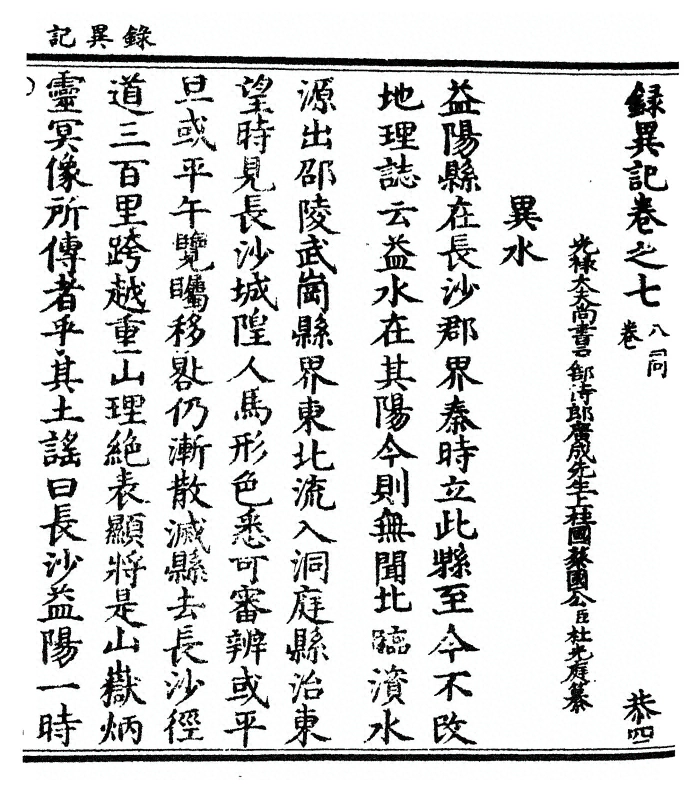 錄異記
録異記卷之七
八同
卷
恭四
光祿大夫尚書戶部侍郎廣成先生上柱國蔡國公臣杜光庭纂
異水
益陽縣在長沙郡界秦時立此縣至今不改
地理誌云益水在其陽今則無聞北臨濱水
源出邵陵武崗縣界東北流入洞庭縣治東
望時見長沙城隍人馬形色悉可審辨或平
旦或平午覽矚移晷仍漸散滅縣去長沙徑
道三百里跨越重山理絶表顯將是山嶽炳
靈冥像所傳者乎其土謠曰長沙益陽一時